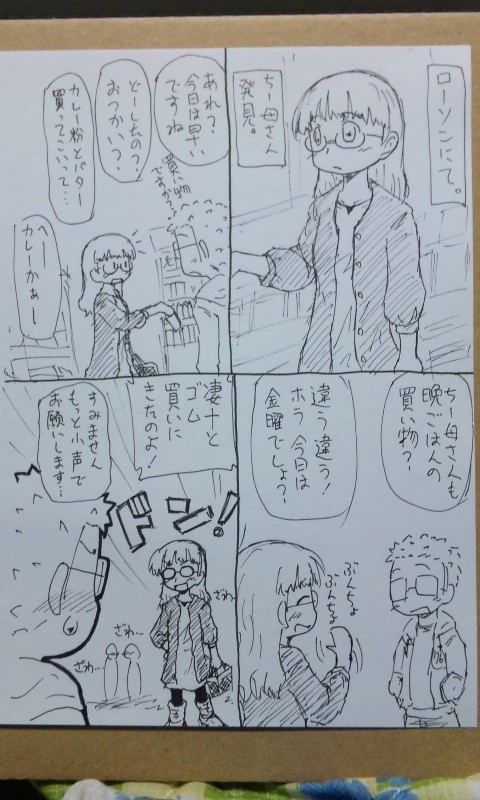 ローソンにて。
ちー母さん
発見。
あれ?
今日は早い
ですね
買い物
ですか?
どーしたの?
おつかい?
カレー粉とバター
買ってこいって…
へー
カレーかぁー
ちー母さんも
晩ごはんの
買い物?
違う違う!
ホラ 今日は
金曜でしょ?
ぶんちょ
ぶんちょ
凄十と
ゴム
買いに
きたのよ!
ドン!
ざわ…
ざわ…
ざわ…
すみません
もっと小声で
お願いします…